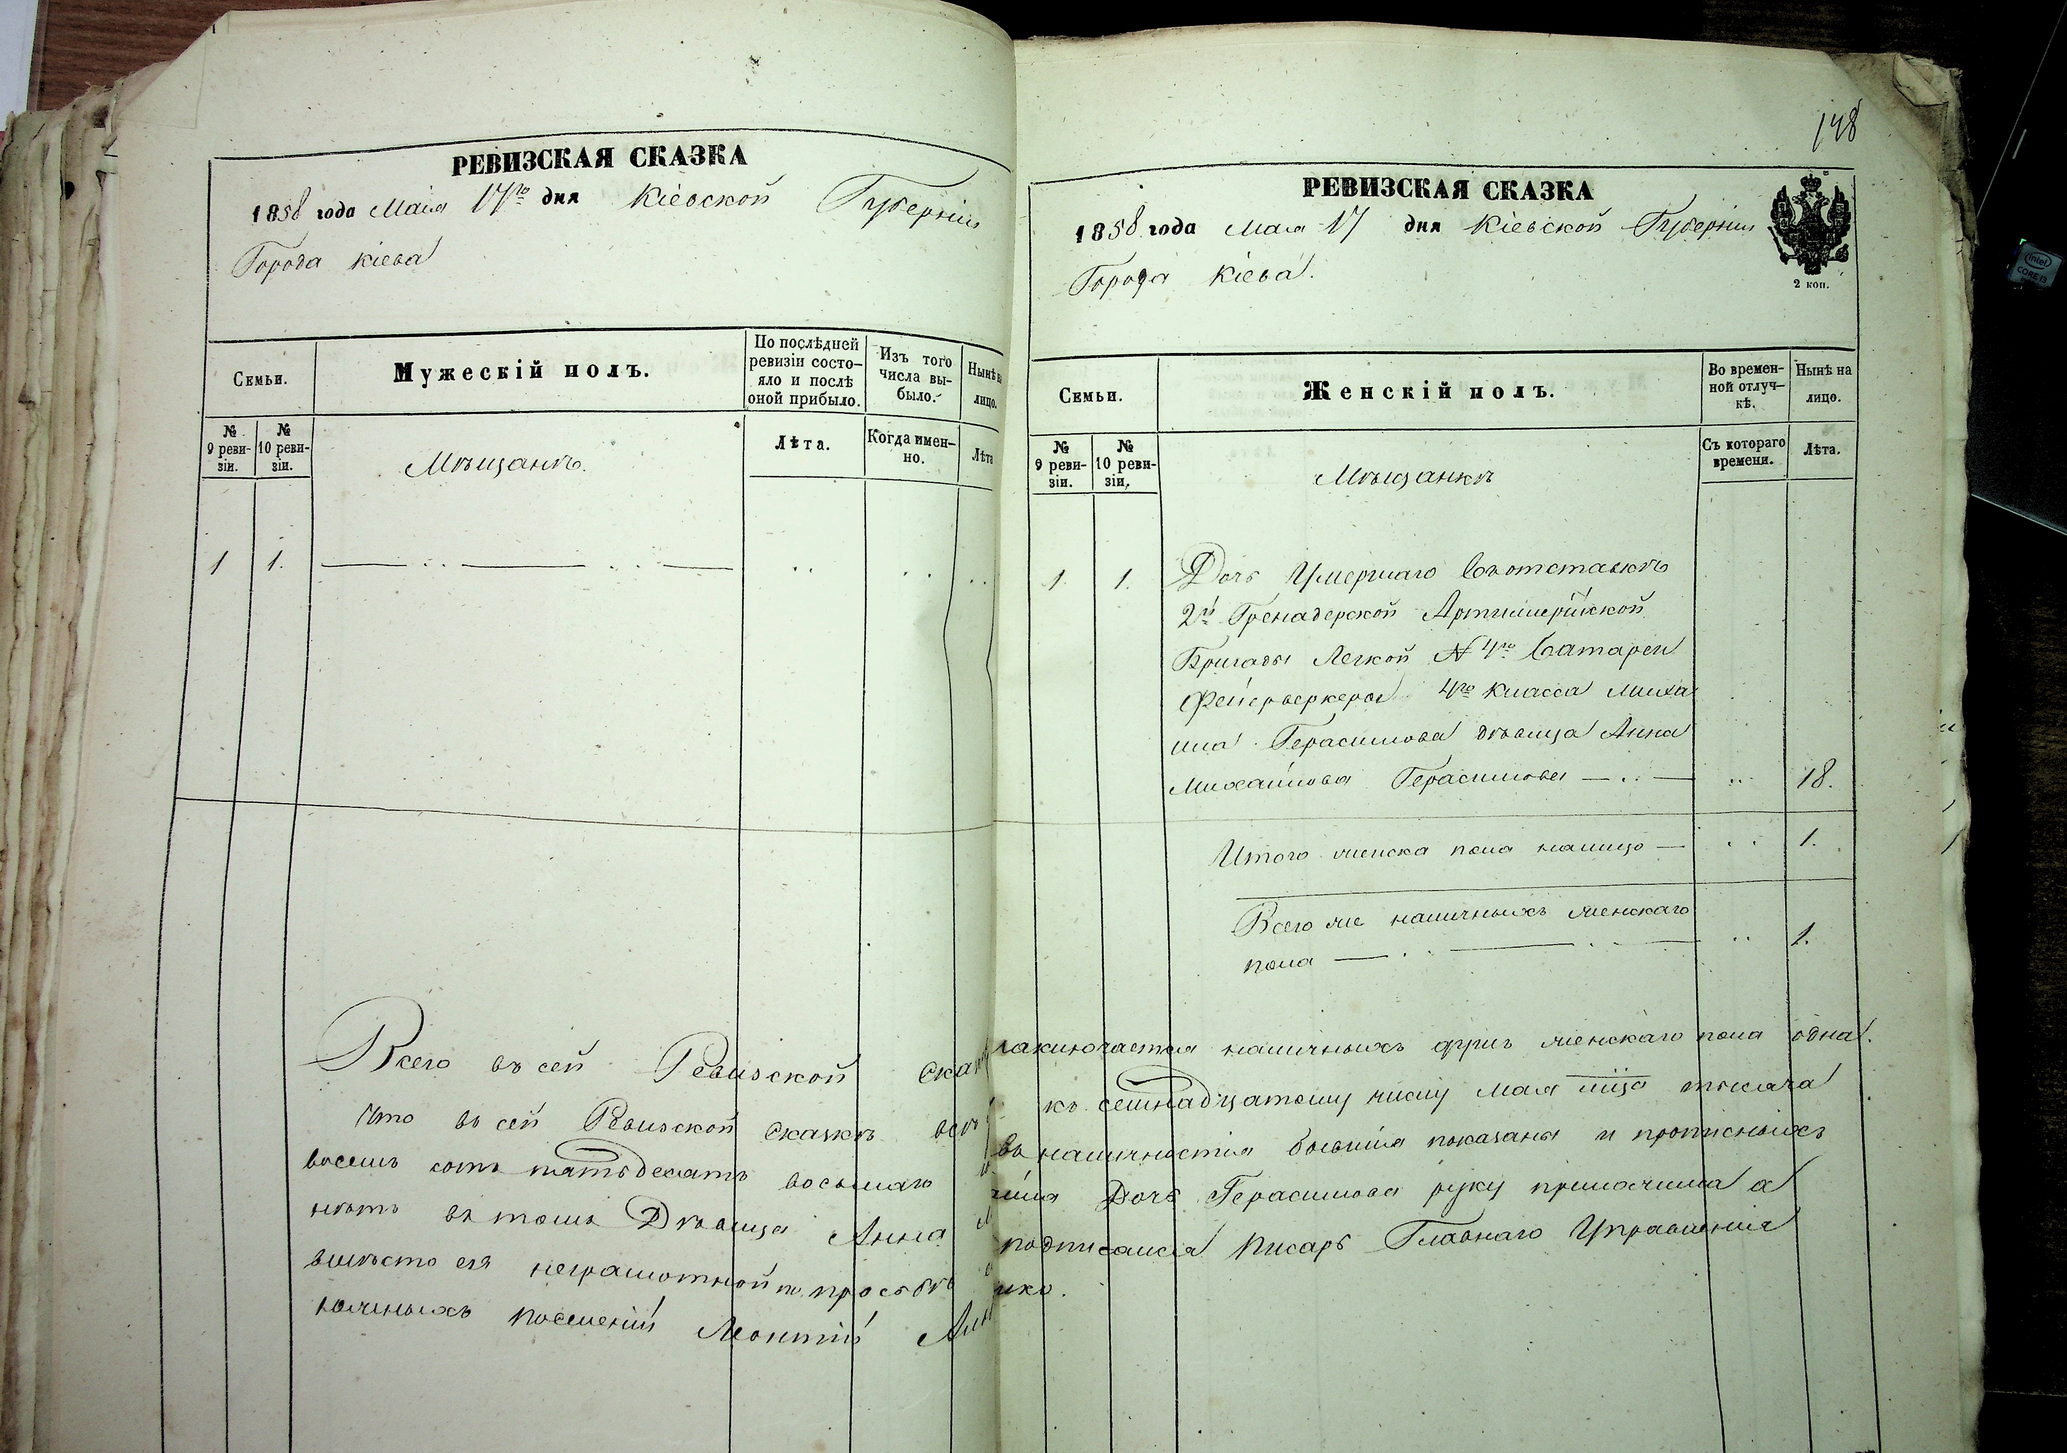 РЕВИЗСКАЯ СКАЗКА
1858 года Маія 17го дня Кіевской Губерніи
Города Кіева
Семьи.
Мужескій полъ.
По послѣдней ревизіи состо-
яло и послѣ оной прибыло.
Изъ того числа вы-
было.
Нынѣ на лицо.
№ 9 реви-
зіи.
№ 10 реви-
зіи.
Мѣщанѣ.
Лѣта.
Когда имен-
но.
Лѣта
1 1.
148
РЕВИЗСКАЯ СКАЗКА
1858 года Мая 17 дня Кіевской Губерніи
Города Кіева.
2 коп.
Семьи.
Женскій полъ.
Во времен-
ной отлуч-
кѣ.
Нынѣ на лицо.
№ 9 реви-
зіи.
№ 10 реви-
зіи.
Мѣщанкѣ
Съ котораго времени.
Лѣта.
1. 1. Дочь Умершаго Въотставкѣ
2й Гренадерской Артилерійской
Бригады Легкой N 4го Батареи
Фейерверкера 4го класса Миха
ила Герасимова дѣвица Анна
Михайлова Герасимова 18.
Итого женска пола налицо 1.
Всего же наличныхъ женскаго
пола 1.
Всего въ сей Ревизской сказкѣ заключается наличныхъ душъ женскаго пола одна.
Что въ сей Ревизской сказкѣ всѣ къ семнадцатому числу мая мца тысяча
восемь сотъ пятьдесятъ восьмаго въ наличностія бывшія показаны и прописныхъ
нѣтъ въ томъ Дѣвица Анна Дочь Герасимова руку приложила а
вмѣсто ея неграмотной по просьбѣ подписался Писарь Главнаго Управленія
поселеній Леонтій